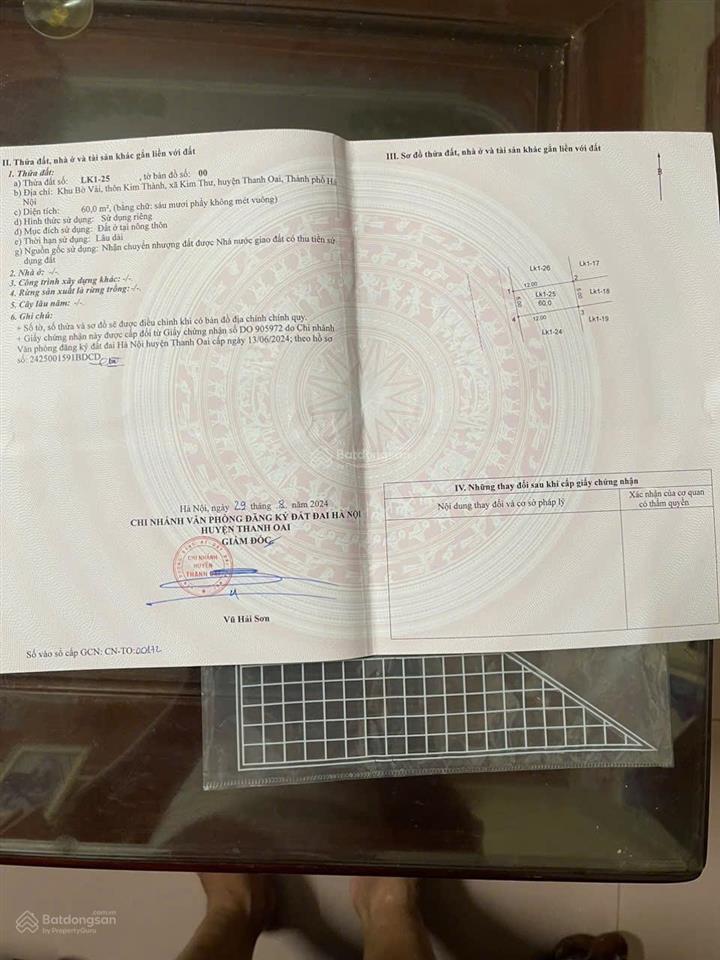 II. Thửa đất, nhà ở và tài sản khác gắn liền với đất
1. Thửa đất:
a) Thửa đất số: LK1-25 , tờ bản đồ số: 00
b) Địa chỉ: Khu Bờ Vải, thôn Kim Thành, xã Kim Thư, huyện Thanh Oai, Thành phố Hà
Nội
c) Diện tích: 60,0 m², (bằng chữ: sáu mươi phẩy không mét vuông)
d) Hình thức sử dụng: Sử dụng riêng
đ) Mục đích sử dụng: Đất ở tại nông thôn
e) Thời hạn sử dụng: Lâu dài
g) Nguồn gốc sử dụng: Nhận chuyển nhượng đất được Nhà nước giao đất có thu tiền sử
dụng đất
2. Nhà ở: -/-
3. Công trình xây dựng khác: -/-
4. Rừng sản xuất là rừng trồng: -/-
5. Cây lâu năm: -/-
6. Ghi chú:
+ Số tờ, số thửa và sơ đồ sẽ được điều chỉnh khi có bản đồ địa chính chính quy.
+ Giấy chứng nhận này được cấp đổi từ Giấy chứng nhận số DO 905972 do Chi nhánh
Văn phòng đăng ký đất đai Hà Nội huyện Thanh Oai cấp ngày 13/06/2024; theo hồ sơ
số: 2425001591BDCD
Hà Nội, ngày 29 tháng 8 năm 2024
CHI NHÁNH VĂN PHÒNG ĐĂNG KÝ ĐẤT ĐAI HÀ NỘI
HUYỆN THANH OAI
GIÁM ĐỐC
CHI NHÁNH
HUYỆN
THANH OAI
Vũ Hải Sơn
Số vào sổ cấp GCN: CN-TO:00172
III. Sơ đồ thửa đất, nhà ở và tài sản khác gắn liền với đất
B
Lk1-26
Lk1-17
1
12.00
2
5.00
Lk1-25
60,0
5.00
Lk1-18
4
12.00
3
Lk1-19
Lk1-24
IV. Những thay đổi sau khi cấp giấy chứng nhận
Nội dung thay đổi và cơ sở pháp lý
Xác nhận của cơ quan
có thẩm quyền
Batdongsan
Batdongsan.com.vn
by PropertyGuru